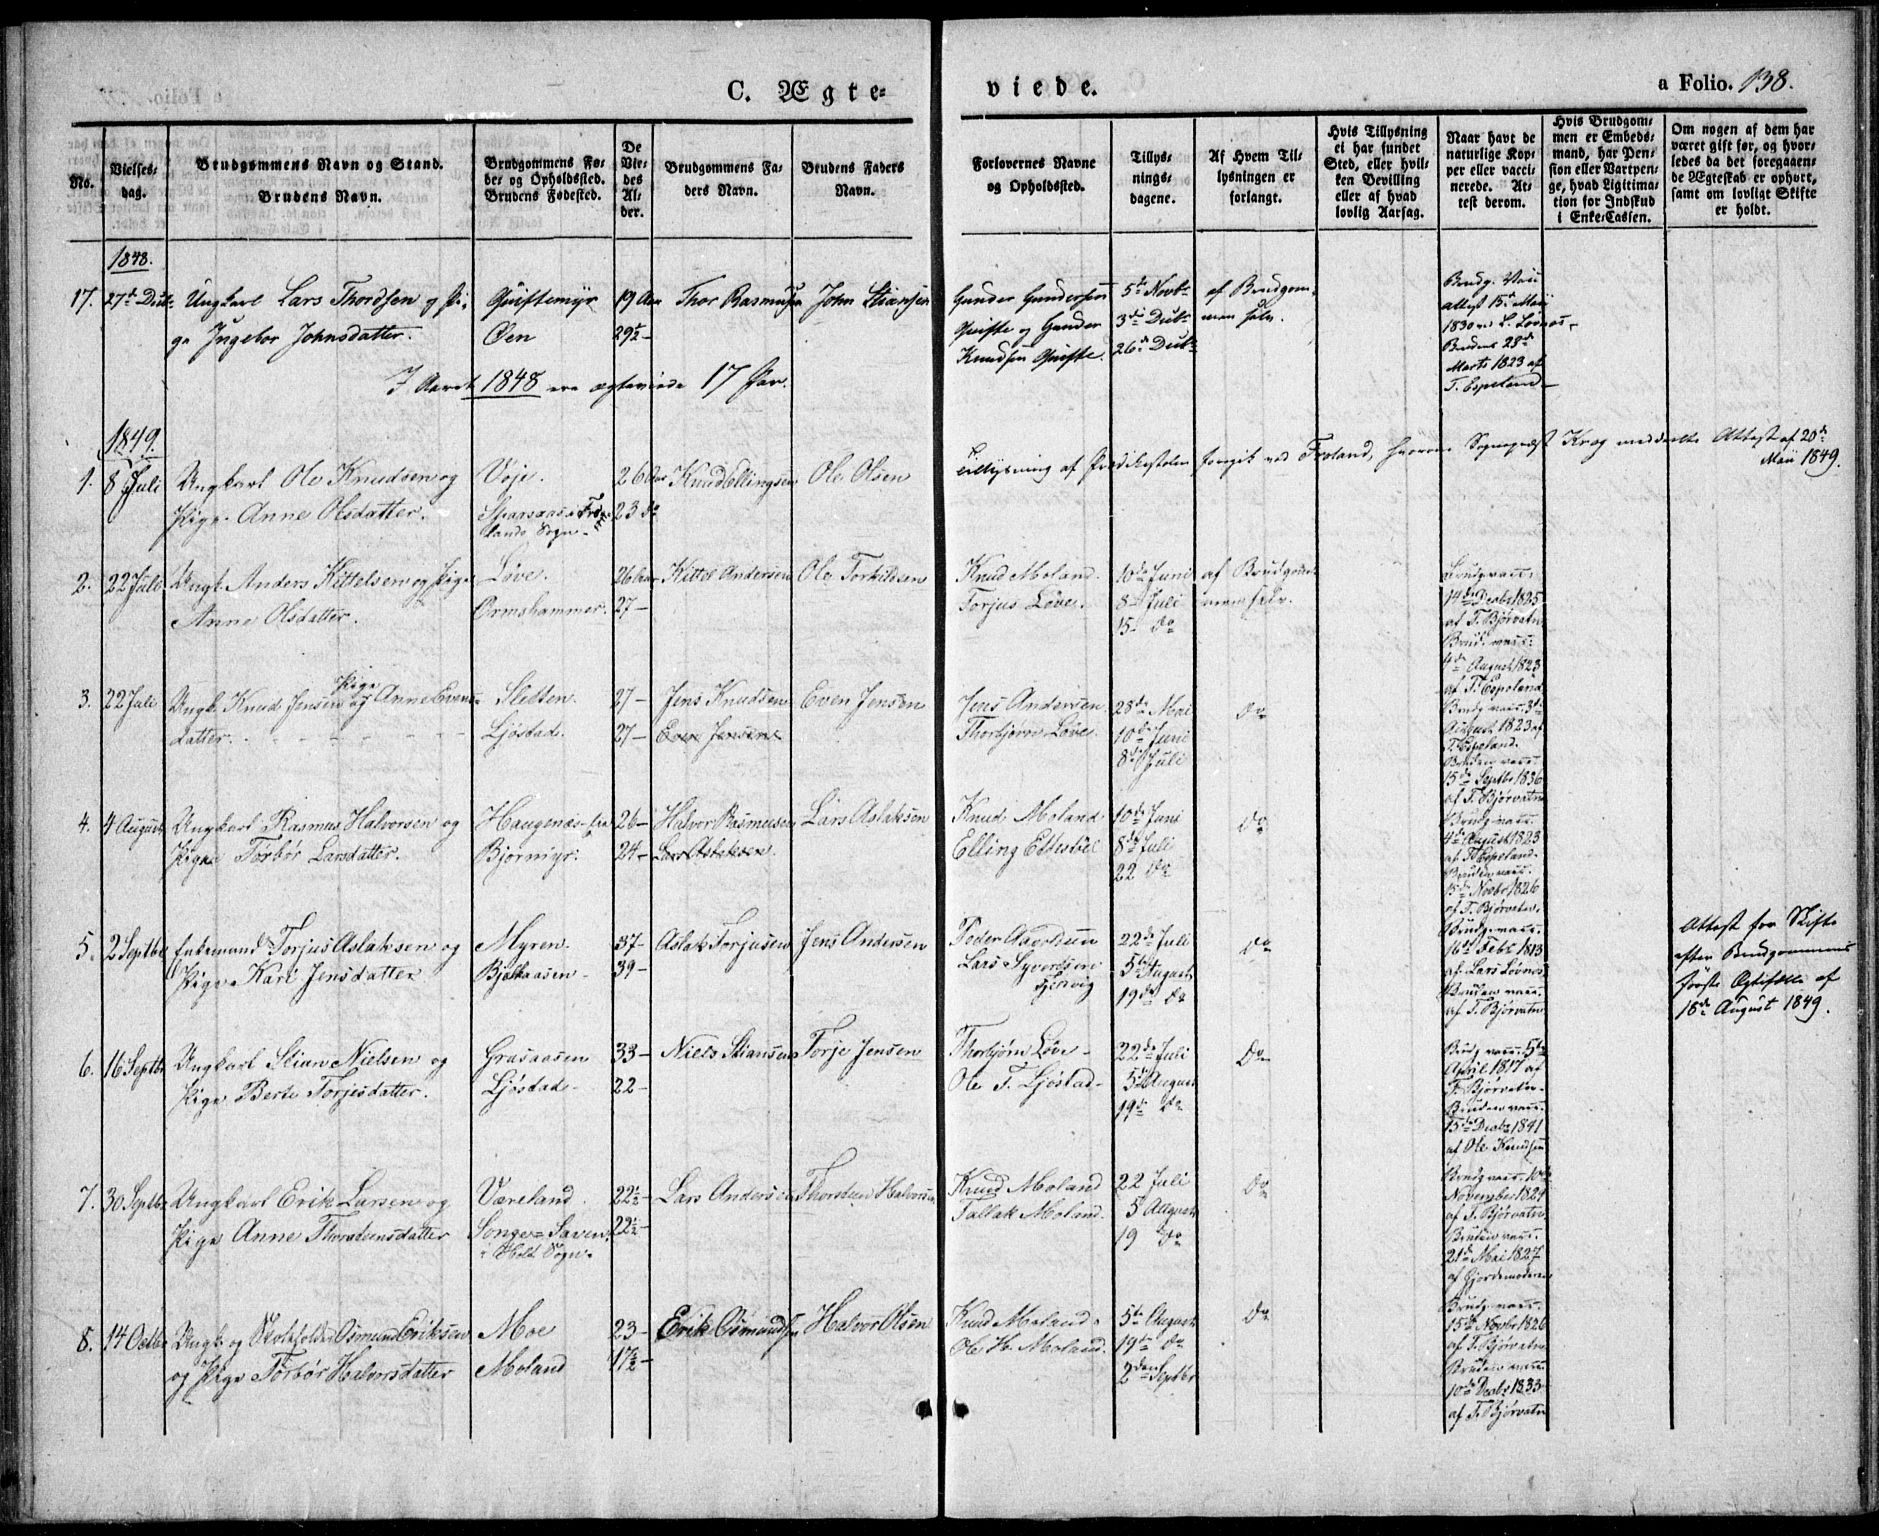 C. Ægte=
viede.
a Folio. 138.
No.
Vielses-
dag.
Brudgommens Navn og Stand.
Brudens Navn.
Brudgommens Fø-
de- og Opholdssted.
Brudens Fødested.
De
Vie-
des
Al-
der.
Brudgommens Fa-
ders Navn.
Brudens Faders
Navn.
Forlovernes Navne
og Opholdssted.
Tillys-
nings-
dagene.
Af Hvem Til-
lysningen er
forlangt.
Hvis Tillysning
ei har fundet
Sted, eller hvil-
ken Bevilling
eller af hvad
lovlig Aarsag.
Naar havt de
naturlige Kop-
per eller vacci-
nerede. At-
test derom.
Hvis Brudgom-
men er Embeds-
mand, har Pen-
sion eller Vartpen-
ge, hvad Ligitima-
tion for Indskud
i Enke-Cassen.
Om nogen af dem har
været gift før, og hvor-
ledes da det foregaaen-
de Ægteskab er ophørt,
samt om lovligt Skifte
er holdt.
1848.
17. 27de Decbr Ungkarl Lars Thordsen og Pi-
ge Ingebor Johnsdatter.
Qvistemyr
Øen
19 Aar
29½ –
Thor Rasmusen
John Stiansen
Gunder Gundersen
Qviste og Gunder
Knudsen Qviste.
5te Novbr
3die Decbr
26de Decbr
af Brudgom-
men selv.
Brudg. Vacc
attest 15de Maii
1830 ved L. Løvnæs,
Brudens 23de
Marts 1823 af
T. Espeland –
I Aaret 1848 ere ægteviede 17 Par.
1849.
1. 8 Juli Ungkarl Ole Knudsen og
Pige Anne Olsdatter.
Vøje.
Sparsaas i Fro-
lands Sogn –
26 Aar
23 do
Knud Ellingsen
Ole Olsen
Tillysning af Prædikestolen foregik ved Froland, hvorom Sognepræst Krog meddeelte Attest af 20de
Maii 1849.
2. 22 Juli Ungk. Anders Kittelsen og Pige
Anne Olsdatter.
Løve.
Ormshammer.
26 Aar
27 –
Kittel Andersen
Ole Torkildsen
Knud Moland.
Torjus Løve.
10de Juni
8de Juli
15 do
af Brudgom-
men selv.
Brudg. vacc.
14de Decbr 1825
af T. Bjørvatn
Brud. vacc.
4de August 1823
af T. Espeland
3. 22 Juli Ungk. Knud Jensen og Pige Anne Evens-
datter.
Sletten.
Ljøstad.
27 –
27 –
Jens Knudsen
Even Jensen
Even Jensen
Jens Andersen
Thorbjørn Løve
28de Mai
10de Juni
8de Juli
do
Brudg. vacc. 3de
August 1823 af
T. Espeland.
Bruden vacc.
15de Septbr 1836
af T. Bjørvatn
4. 4 August Ungkarl Rasmus Halvorsen og
Pige Torbør Larsdatter.
Haugenæs
Bjørmyr.
26 –
24 –
Halvor Rasmusen
Lars Aslaksen.
Lars Aslaksen
Knud Moland
Elling Ettesbøl
10de Juni
8de Juli
22 do
do
Brudg. vacc.
4de August 1823
af T. Espeland.
Bruden vacc.
15de Novbr 1826
af T. Bjørvatn.
5. 2 Septbr Enkemand Torjus Aslaksen og
Pige Kari Jensdatter
Myren.
Bjelkaasen –
37 –
39 –
Aslak Torjusen
Jens Andersen
Peder Aavoldsen
Lars Syvertsen
22de Juli
5te August
19de do
do
Brudg. vacc.
16de Febr 1813
af Lars Løvnæs
Bruden vacc.
af T. Bjørvatn
Attest for Skifte
efter Brudgommens
første Ægtefælle af
18de August 1849.
6. 16 Septbr Ungkarl Stian Nielsen og
Pige Berte Torjesdatter.
Grasaasen
Ljøstad –
33 –
22 –
Niels Stiansen
Torje Jensen
Thorbjørn Løve –
Ole T. Ljøstad –
22de Juli
5te August
19de do
do
Brudg. vacc. 5te
April 1817 af
T. Bjørvatn –
Bruden vacc.
15de Decbr 1841
af Ole Knudsen
7. 30 Septbr Ungkarl Erik Larsen og
Pige Anne Thorsteensdatter
Væreland.
Songe Saven
i Holt Sogn.
22½ –
22½ –
Lars Andersen
Thorsteen Halvorsen
Knud Moland
Tallak Moland.
22 Juli
5 August
19 do
do
Brudg. vacc. 10de
November 1824
af T. Bjørvatn.
Bruden vacc.
21de Mai 1827
af Gjordemoderen
8. 14 Octbr Ungk. og Skoleholder Osmund Eriksen
og Pige Torbør Halvorsdatter
Moe
Moland
23 –
17½ –
Erik Osmundsen
Halvor Olsen
Knud Moland.
Ole H. Moland.
5te August
19de do
2den Septbr
do
Brudg. vacc.
15de Novbr 1826
af T. Bjørvatn
Bruden vacc.
10de Decbr 1833
af T. Bjørvatn